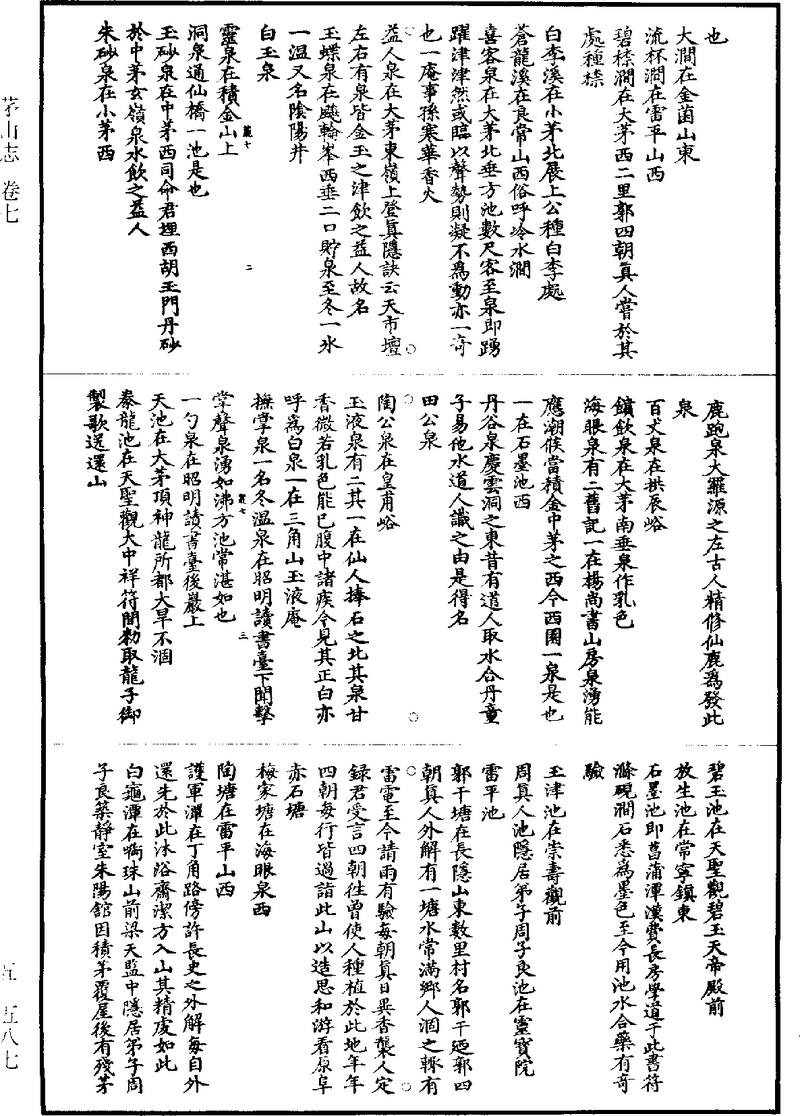 也
大澗在金菌山東
流杯澗在雷平山西
碧㮈澗在大茅西二里郭四朝眞人嘗於其
處種㮈
白李溪在小茅北展上公種白李處
蒼龍溪在良常山西俗呼冷水澗
喜客泉在大茅北垂方池數尺客至泉即踴
躍津津然或臨以聲勢則凝不爲動亦一奇
也一庵事孫寒華香火
益人泉在大茅東嶺上登眞隱訣云天市壇
左右有泉皆金玉之津飲之益人故名
玉蝶泉在颷輪峯西垂二口貯泉至冬一氷
一溫又名陰陽井
白玉泉
靈泉在積金山上
洞泉通仙橋一池是也
玉砂泉在中茅西司命君埋西胡玉門丹砂
於中茅玄嶺泉水飲之益人
朱砂泉在小茅西
鹿跑泉大羅源之左古人精修仙鹿爲發此
泉
百丈泉在拱辰峪
鎮飲泉在大茅南垂泉作乳色
海眼泉有二舊記一在楊尚書山房泉湧能
應潮候當積金中茅之西今西圃一泉是也
一在石墨池西
丹谷泉慶雲洞之東昔有道人取水合丹童
子易他水道人識之由是得名
田公泉
陶公泉在皇甫峪
玉液泉有二其一在仙人捧石之北其泉甘
香微若乳色能已腹中諸疾今見其正白亦
呼爲白泉一在三角山玉液庵
撫掌泉一名冬溫泉在昭明讀書臺下聞擊
掌聲泉湧如沸方池常湛如也
一勺泉在昭明讀書臺後巖上
天池在大茅頂神龍所都大旱不涸
豢龍池在天聖觀大中祥符間勑取龍子御
製歌送還山
碧玉池在天聖觀碧玉天帝殿前
放生池在常寧鎮東
石墨池即菖蒲潭漢費長房學道于此書符
滌硯澗石悉爲墨色至今用池水合藥有奇
驗
玉津池在崇壽觀前
周眞人池隱居弟子周子良池在靈寶院
雷平池
郭干塘在長隱山東數里村名郭干廼郭四
朝眞人外解有一塘水常滿鄉人涸之輒有
雷電至今請雨有驗每朝眞日異香襲人定
録君受言四朝往曾使人種植於此地年年
四朝每行皆過詣此山以造思和游看原阜
赤石塘
梅家塘在海眼泉西
陶塘在雷平山西
護軍潭在丁角路傍許長史之外解每自外
還先於此沐浴齋潔方入山其精虔如此
白龜潭在㗸珠山前梁天監中隱居弟子周
子良築靜室朱陽館因積茅覆屋後有殘茅
茅山志 卷七
五 五八七
蓋七
二
蓋七
三